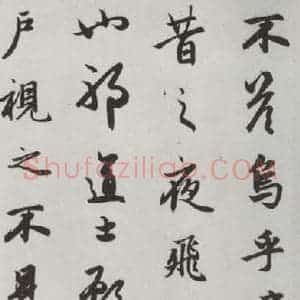 不答烏乎
昔之夜飛
也邪道士顧
戶視之不見
Shufaziliao.com